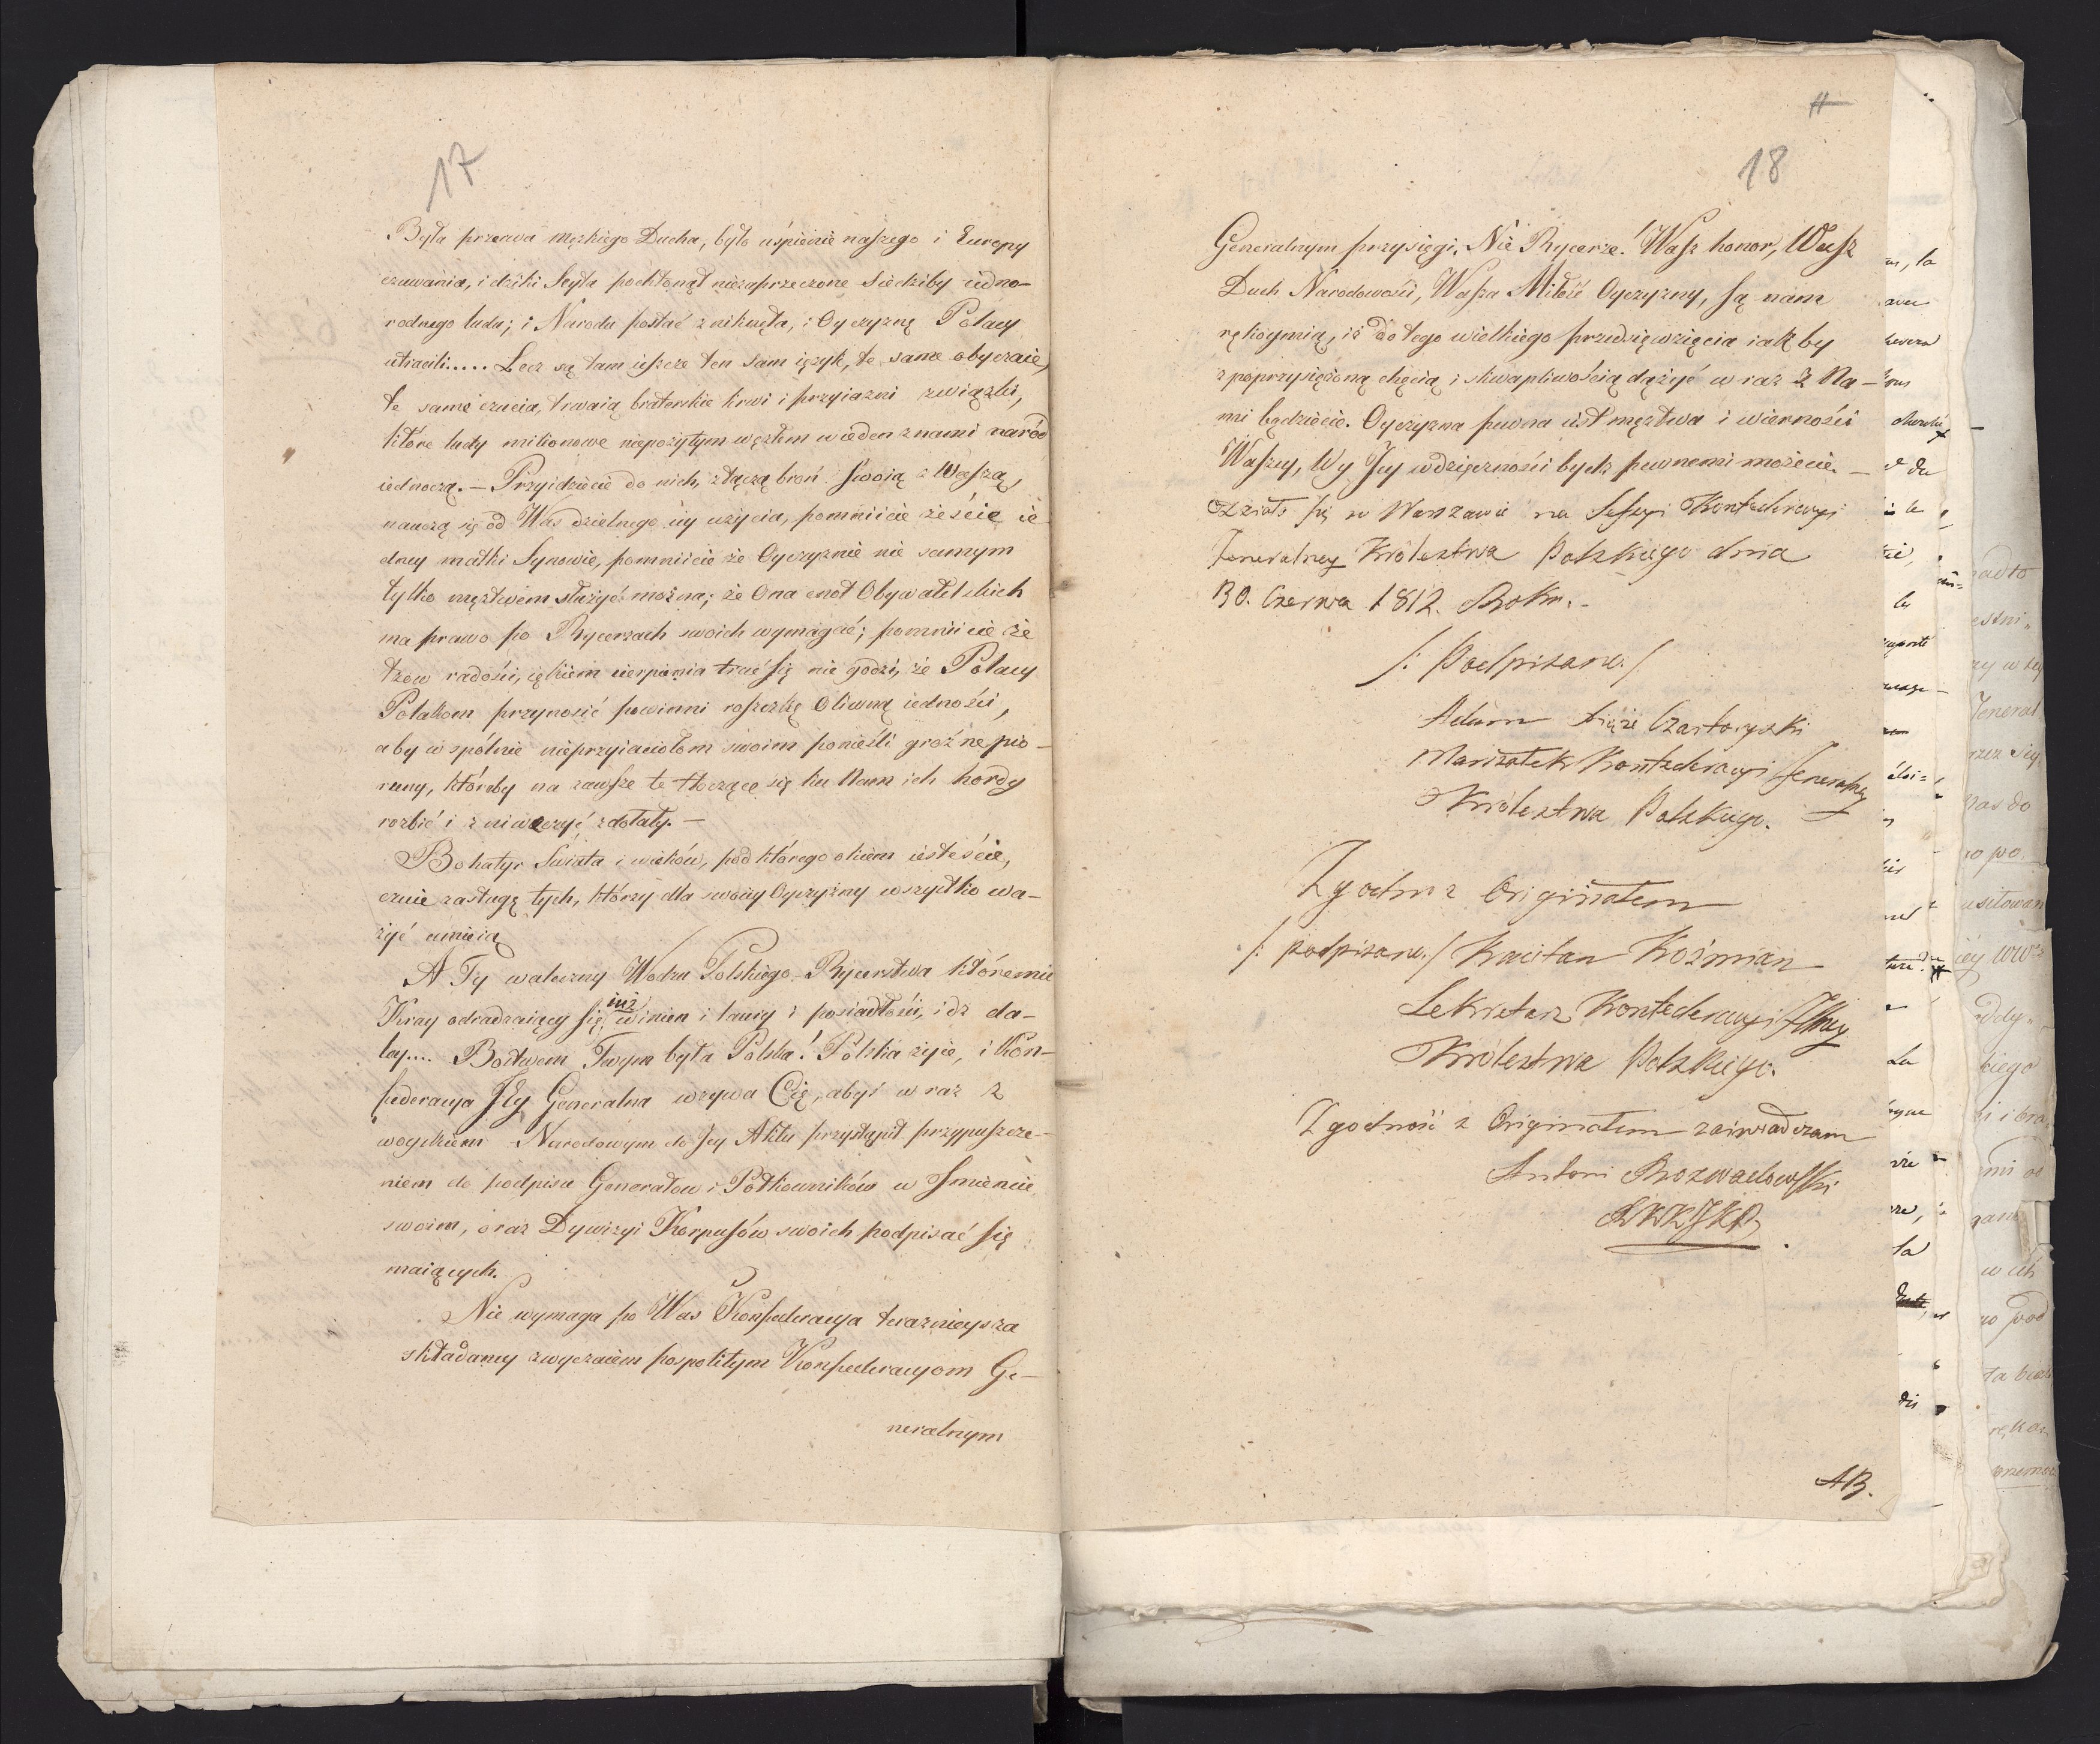 17
Była przerwa męzkiego Ducha, było uśpienie naszego i Europy
czuwania, i dziki Scyta pochłonął niezaprzeczone siedziby iedno-
rodnego ludu; i Narodu postać znikneła, i Oyczyznę Polacy
utracili..... Lecz są tam ieszcze ten sam ięzyk, te same obyczaie,
te same czucia, trwaią braterskie krwi i przyiazni związki,
które ludy milionowe niepożytym węzłem w ieden z nami naród
iednoczą. — Przyidziecie do nich, złączą broń swoią z Waszą,
nauczą się od Was dzielnego iey użycia, pomniicie żeście ie-
dney matki Synowie, pomniicie że Oyczyznie nie samym
tylko męztwem służyć można; że Ona cnot Obywatelskich
ma prawo po Rycerzach swoich wymagać; pomniicie że
łzow radości, iękiem cierpienia truć się nie godzi, że Polacy
Polakom przynosić powinni roszczkę Oliwną iedności,
aby wspólnie nieprzyiaciołom swoim ponieśli groźne pio-
runy, któreby na zawsze te tłoczące się ku Nam ich hordy
rozbić i zniweczyć zdołały. —
Bohatyr Swiata i wieków, pod którego okiem iesteście,
czuie zasługę tych, którzy dla swoiey Oyczyzny wszystko wa-
żyć umieią
A Ty waleczny Wodzu Polskiego Rycerstwa któremu
Kray odradzaiący się iuż winien i laury i posiadłości, idz da-
ley.... Bostwem Twym była Polska! Polska żyie, i Kon-
federacya Jey Generalna wzywa Cię, abyś wraz z
woyskiem Narodowym do Jey Aktu przystąpił przypuszcze-
niem do podpisu Generałow i Półkowników w Imieniu
swoim, oraz Dywizyi Korpusów swoich podpisać się
maiących.
Nie wymaga po Was Konfederacya teraznieysza
składaney zwyczaiem pospolitym Konfederacyom Ge-
neralnym
18
Generalnym przysięgi. Nie Rycerze! Wasz honor, Wasz
Duch Narodowości, Wasza Miłość Oyczyzny, są nam
rękoymią, iż do tego wielkiego przedsięwzięcia iak by
z poprzysiężoną chęcią i skwapliwością dążyć wraz z Na-
mi będziecie. Oyczyzna pewna iest męztwa i wierności
Waszey, Wy Jey wdzięczności bydz pewnemi możecie. —
Działo się w Warszawie na Sessyi Konfederacyi
Jeneralney Królestwa Polskiego dnia
30. Czerwca 1812. Roku. -
/: Podpisano. /
Adam Xiąże Czartoryski
Marszałek Konfederacyi Jeneralney
Królestwa Polskiego.
Zgodno z Originałem
/: podpisano. / Kaietan Koźmian
Sekretarz Konfederacyi Jlney
Królestwa Polskiego.
Zgodność z Originałem zaświadczam
Antoni Rozwadowski
AB.